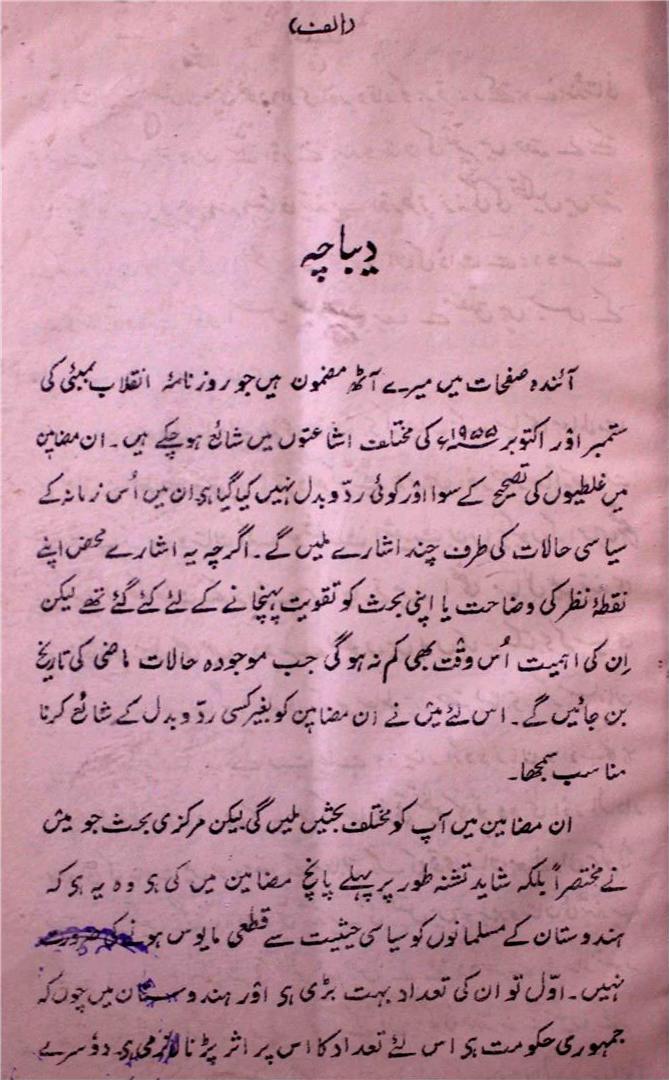 (الف)
دیباچہ
آئندہ صفحات میں میرے آٹھ مضمون ہیں جو روزنامۂ انقلاب بمبئی کی
ستمبر اور اکتوبر ۱۹۵۵ء کی مختلف اشاعتوں میں شائع ہو چکے ہیں۔ ان مضامین
میں غلطیوں کی تصحیح کے سوا اور کوئی ردّ و بدل نہیں کیا گیا ہی ان میں اُس زمانہ کے
سیاسی حالات کی طرف چند اشارے ملیں گے۔ اگرچہ یہ اشارے محض اپنے
نقطۂ نظر کی وضاحت یا اپنی بحث کو تقویت پہنچانے کے لئے کئے گئے تھے لیکن
اِن کی اہمیت اُس وقت بھی کم نہ ہوگی جب موجودہ حالات ماضی کی تاریخ
بن جائیں گے۔ اس لئے میں نے ان مضامین کو بغیر کسی ردّ و بدل کے شائع کرنا
مناسب سمجھا۔
ان مضامین میں آپ کو مختلف بحثیں ملیں گی لیکن مرکزی بحث جو میں
نے مختصراً بلکہ شاید تشنہ طور پر پہلے پانچ مضامین میں کی ہی وہ یہ ہی کہ
ہندوستان کے مسلمانوں کو سیاسی حیثیت سے قطعی مایوس ہونے کی ضرورت
نہیں۔ اوّل تو ان کی تعداد بہت بڑی ہی اور ہندوستان میں چوں کہ
جمہوری حکومت ہی اس لئے تعداد کا اس پر اثر پڑنا لازمی ہی دوسرے